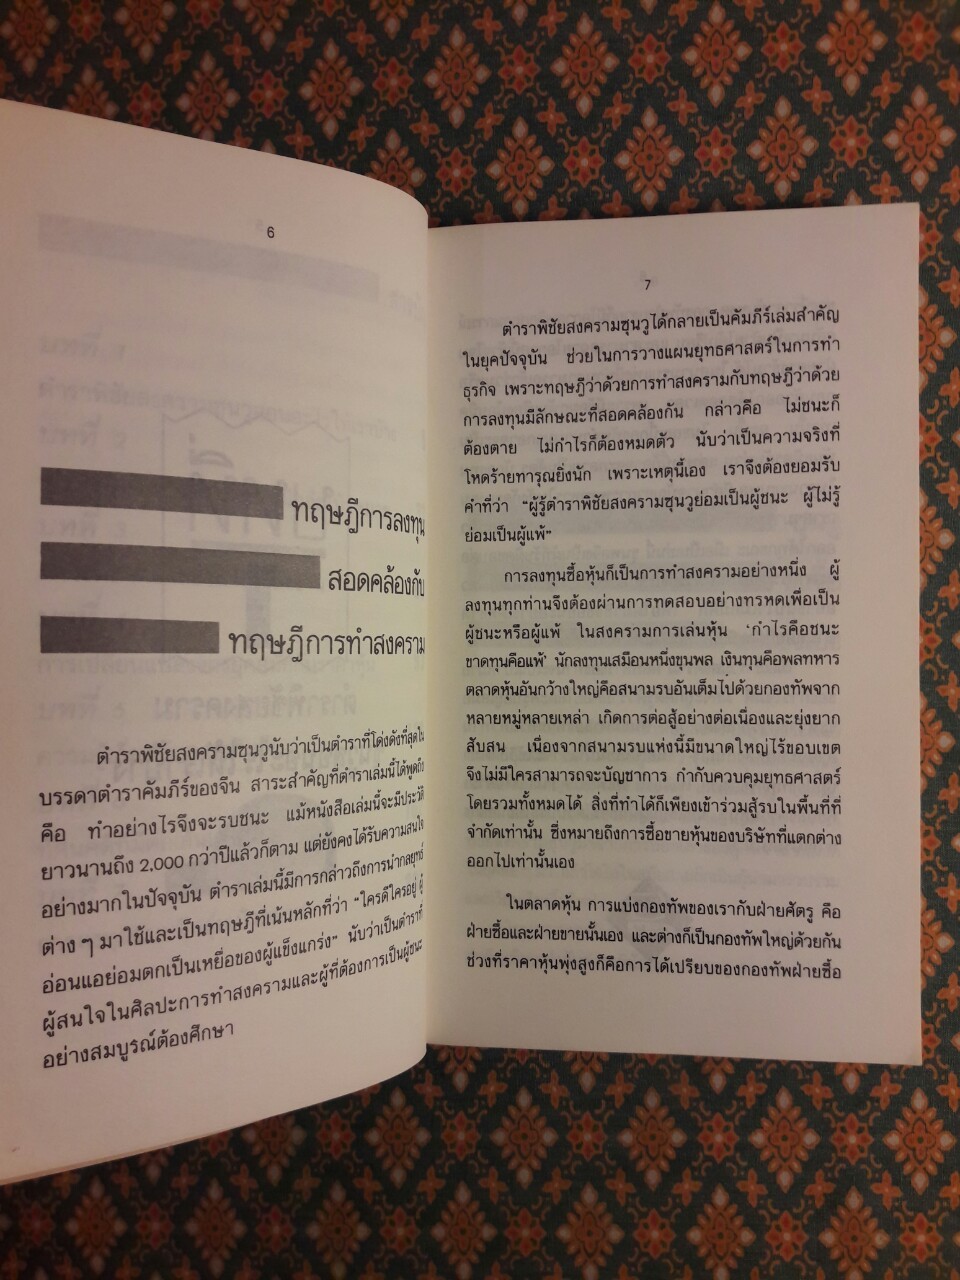 6
ทฤษฎีการลงทุน
สอดคล้องกับ
ทฤษฎีการทำสงคราม
ตำราพิชัยสงครามซุนวูนับว่าเป็นตำราที่โด่งดังที่สุดใน
บรรดาตำราคัมภีร์ของจีน สาระสำคัญที่ตำราเล่มนี้ได้พูดถึง
คือ ทำอย่างไรจึงจะรบชนะ แม้หนังสือเล่มนี้จะมีประวัติ
ยาวนานถึง 2,000 กว่าปีแล้วก็ตาม แต่ยังคงได้รับความสนใจ
อย่างมากในปัจจุบัน ตำราเล่มนี้มีการกล่าวถึงการนำกลยุทธ์
ต่าง ๆ มาใช้และเป็นทฤษฎีที่เน้นหลักที่ว่า “ใครดีใครอยู่ ผู้
อ่อนแอย่อมตกเป็นเหยื่อของผู้แข็งแกร่ง” นับว่าเป็นตำราที่
ผู้สนใจในศิลปะการทำสงครามและผู้ที่ต้องการเป็นผู้ชนะ
อย่างสมบูรณ์ต้องศึกษา
7
ตำราพิชัยสงครามซุนวูได้กลายเป็นคัมภีร์เล่มสำคัญ
ในยุคปัจจุบัน ช่วยในการวางแผนยุทธศาสตร์ในการทำ
ธุรกิจ เพราะทฤษฎีว่าด้วยการทำสงครามกับทฤษฎีว่าด้วย
การลงทุนมีลักษณะที่สอดคล้องกัน กล่าวคือ ไม่ชนะก็
ต้องตาย ไม่กำไรก็ต้องหมดตัว นับว่าเป็นความจริงที่
โหดร้ายทารุณยิ่งนัก เพราะเหตุนี้เอง เราจึงต้องยอมรับ
คำที่ว่า “ผู้รู้ตำราพิชัยสงครามซุนวูย่อมเป็นผู้ชนะ ผู้ไม่รู้
ย่อมเป็นผู้แพ้”
การลงทุนซื้อหุ้นก็เป็นการทำสงครามอย่างหนึ่ง ผู้
ลงทุนทุกท่านจึงต้องผ่านการทดสอบอย่างทรหดเพื่อเป็น
ผู้ชนะหรือผู้แพ้ ในสงครามการเล่นหุ้น ‘กำไรคือชนะ
ขาดทุนคือแพ้’ นักลงทุนเสมือนหนึ่งขุนพล เงินทุนคือพลทหาร
ตลาดหุ้นอันกว้างใหญ่คือสนามรบอันเต็มไปด้วยกองทัพจาก
หลายหมู่หลายเหล่า เกิดการต่อสู้อย่างต่อเนื่องและยุ่งยาก
สับสน เนื่องจากสนามรบแห่งนี้มีขนาดใหญ่ไร้ขอบเขต
จึงไม่มีใครสามารถจะบัญชาการ กำกับควบคุมยุทธศาสตร์
โดยรวมทั้งหมดได้ สิ่งที่ทำได้ก็เพียงเข้าร่วมสู้รบในพื้นที่ที่
จำกัดเท่านั้น ซึ่งหมายถึงการซื้อขายหุ้นของบริษัทที่แตกต่าง
ออกไปเท่านั้นเอง
ในตลาดหุ้น การแบ่งกองทัพของเรากับฝ่ายศัตรู คือ
ฝ่ายซื้อและฝ่ายขายนั้นเอง และต่างก็เป็นกองทัพใหญ่ด้วยกัน
ช่วงที่ราคาหุ้นพุ่งสูงก็คือการได้เปรียบของกองทัพฝ่ายซื้อ